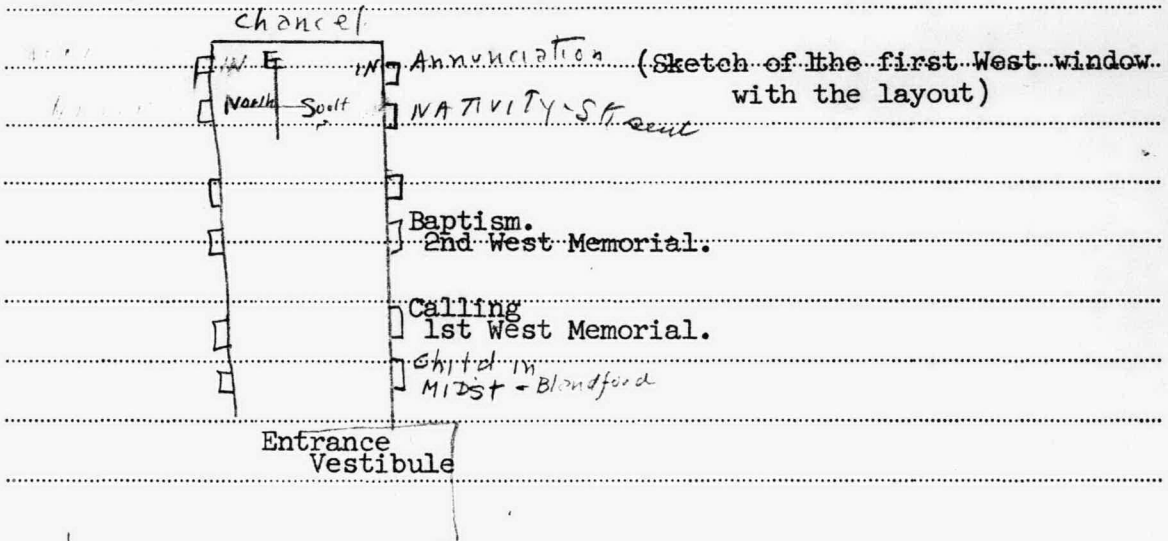 chancel
Annunciation (Sketch of lthe first West window
with the layout)
IN E IN
North South
NATIVITY-St
Baptism.
2nd West Memorial.
Calling
1st West Memorial.
Child in
MIDst - Blandford
Entrance
Vestibule